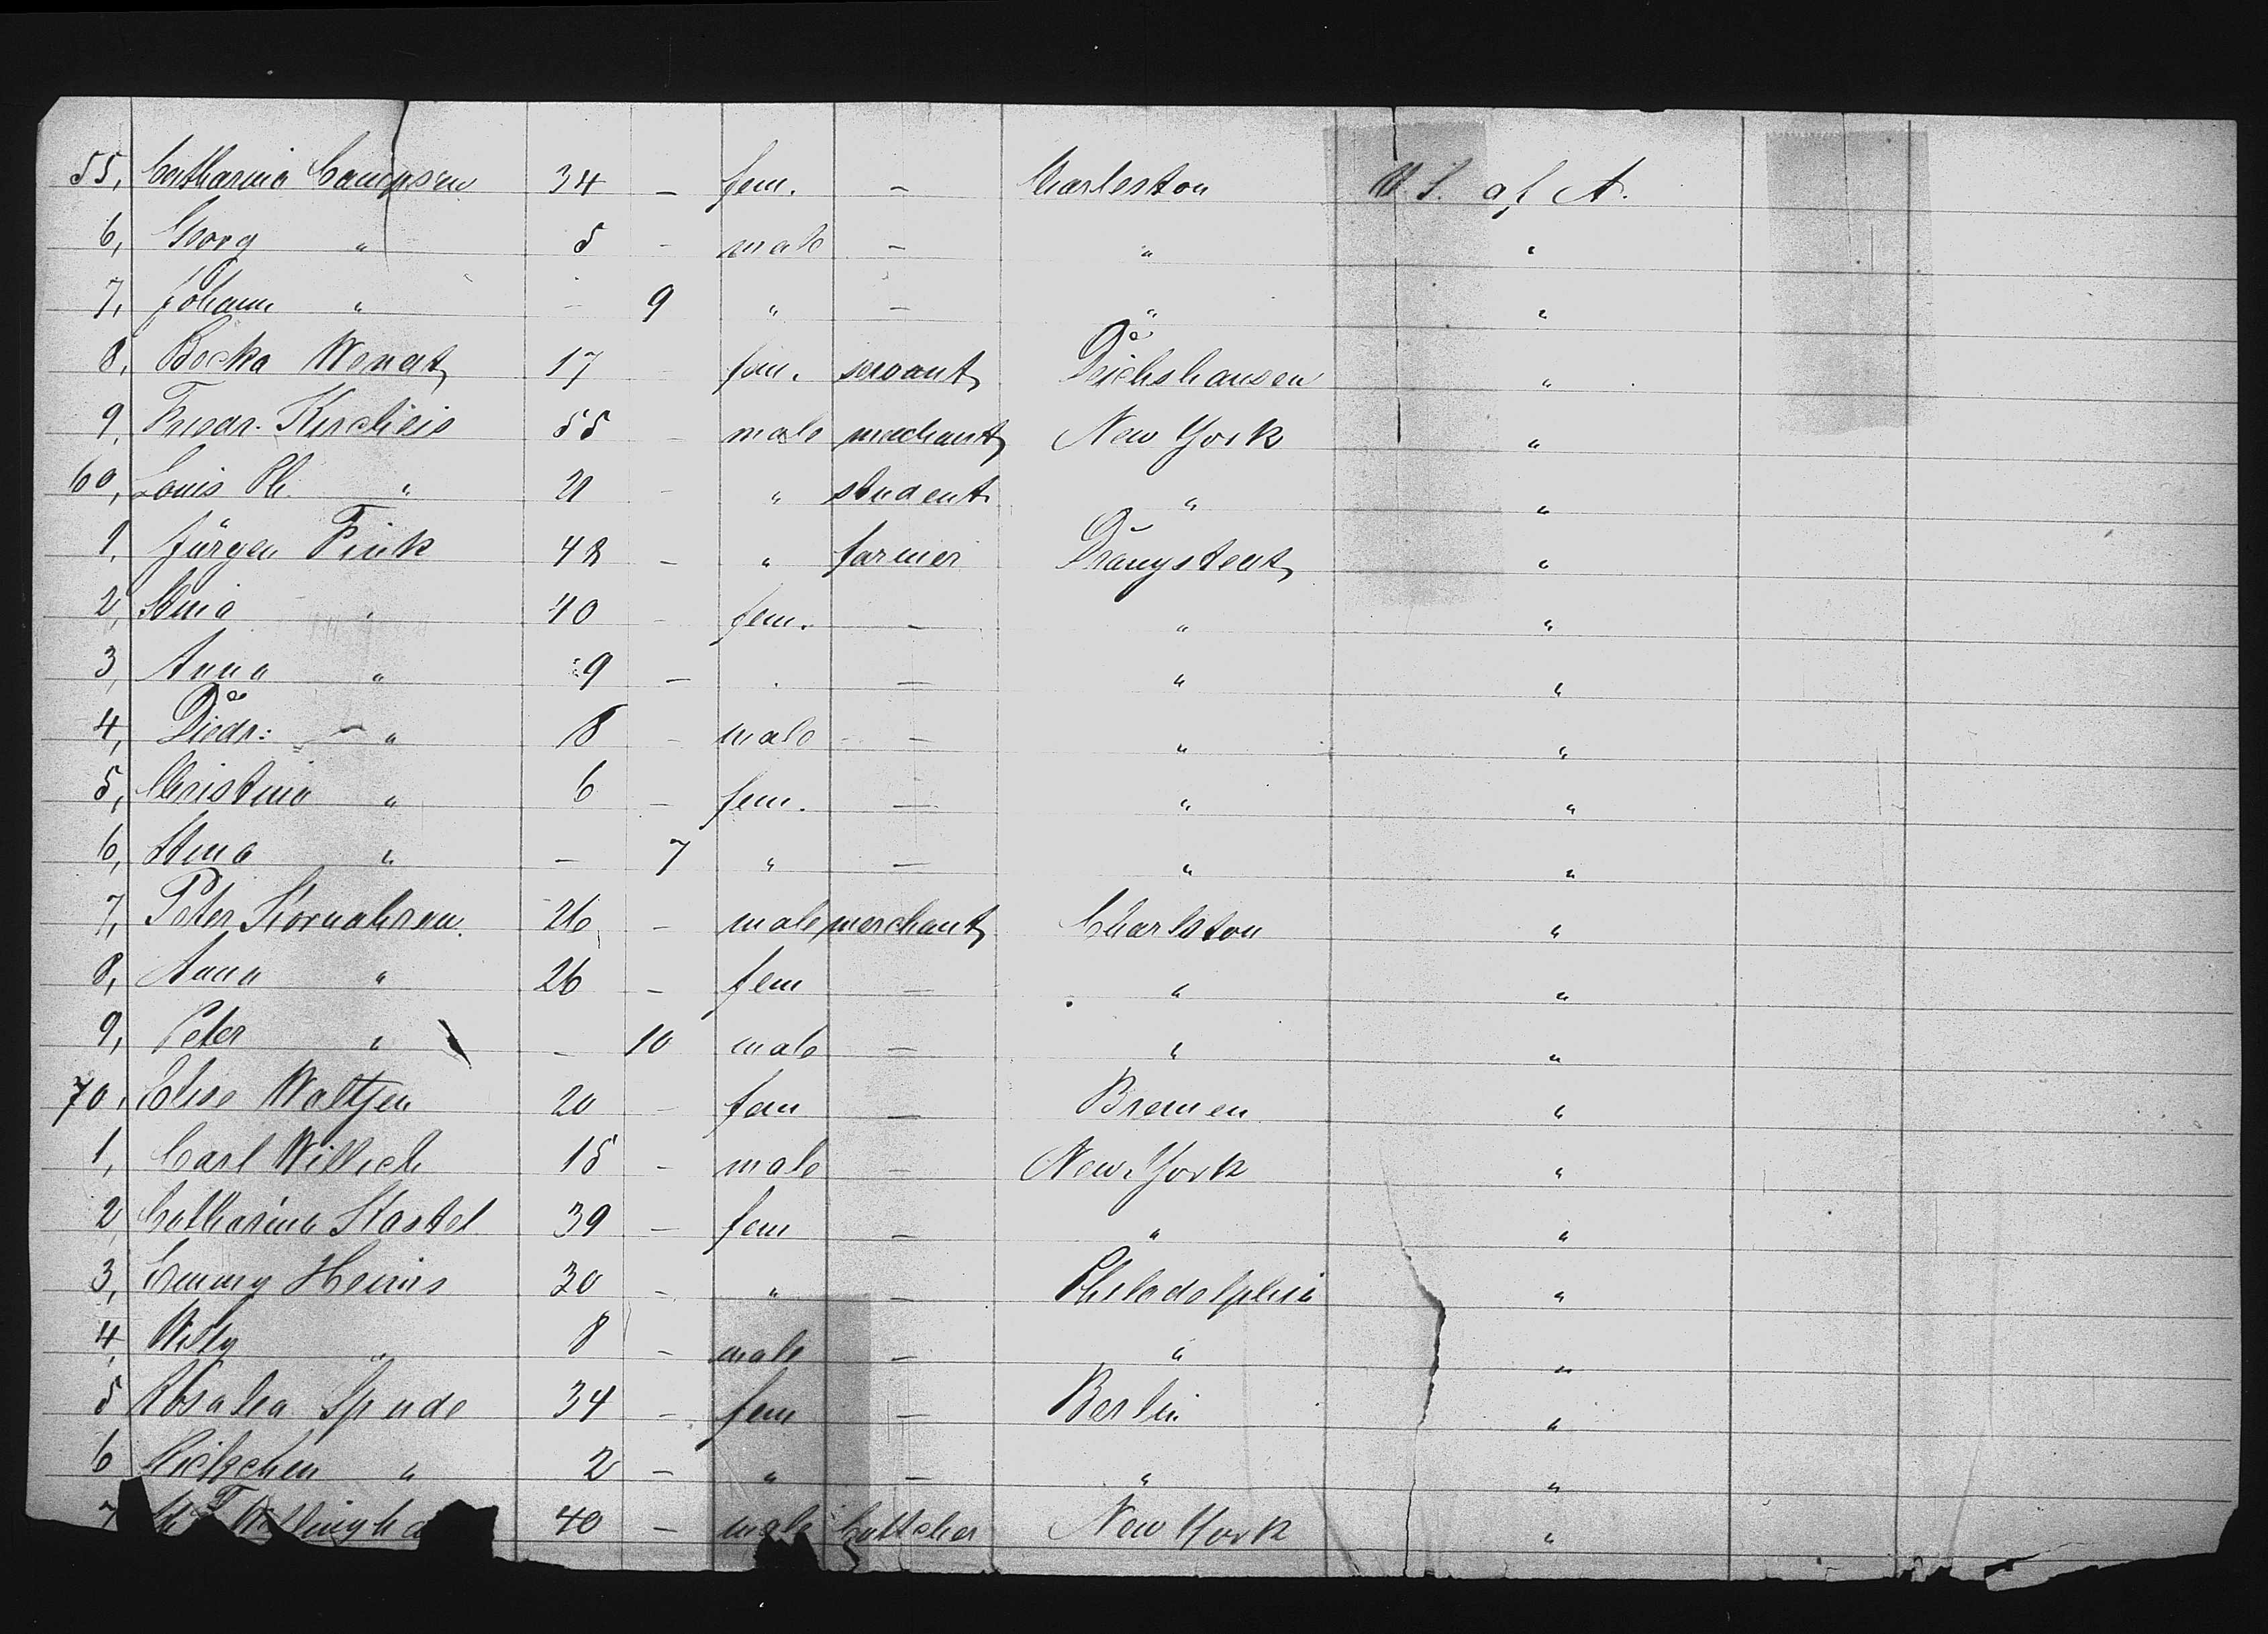 55, Catharina Campsen 34 – fem. – Charleston U. S. of A.
6, Georg " 5 – male – " "
7, Johann " – 9 " – " "
8, Becka Wendt 17 – fem. servant Deichshausen "
9, Friedr. Kircheis 55 – male merchant New York "
60, Louis Ph. " 21 – " student " "
1, Jürgen Fink 48 – " farmer Drangstedt "
2, Stina " 40 – fem. – " "
3, Anna " 9 – " – " "
4, Diedr: " 8 – male – " "
5, Christina " 6 – fem. – " "
6, Stina " – 7 " – " "
7, Peter Kornahren 26 – male merchant Charleston "
8, Anna " 26 – fem – " "
9, Peter " – 10 male – " "
70, Elise Waltjen 20 – fem – Bremen "
1, Carl Willich 15 – male – New York "
2, Catharina Kastel 39 – fem – " "
3, Emmy Heins 30 – " – Philadelphia "
4, Willy " 8 – male – " "
5 Rosalia Spude 34 – fem – Berlin "
6 Riekchen " 2 – " – " "
7 40 – male New York "